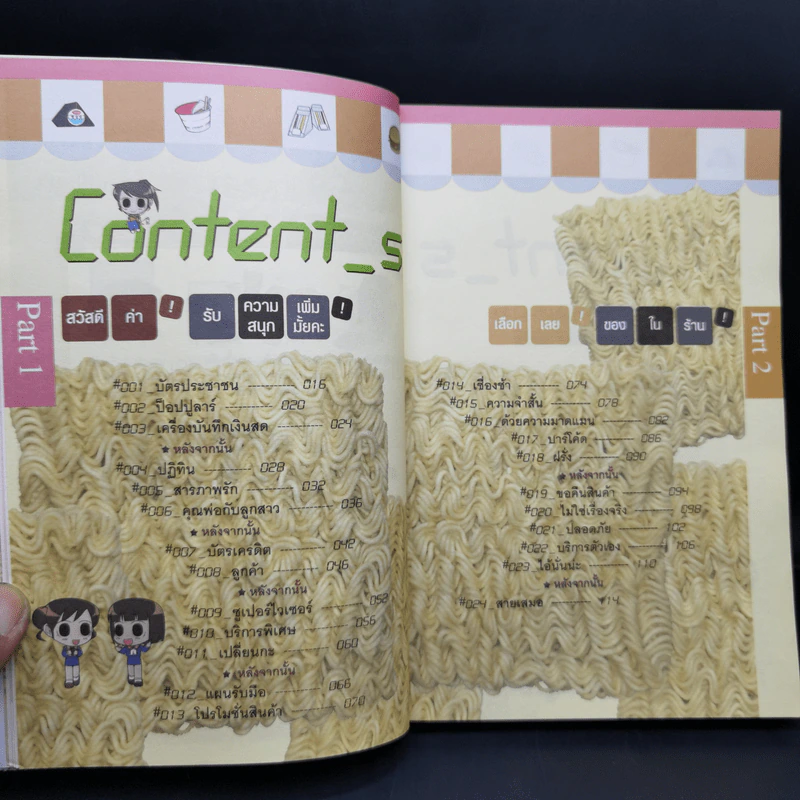 Content_s
Part 1
สวัสดี ค่า ! รับ ความสนุก เพิ่มมั้ยคะ !
#001_บัตรประชาชน 016
#002_ป๊อปปูลาร์ 020
#003_เครื่องบันทึกเงินสด 024
★ หลังจากนั้น
#004_ปฏิทิน 028
#005_สารภาพรัก 032
#006_คุณพ่อกับลูกสาว 036
★ หลังจากนั้น
#007_บัตรเครดิต 042
#008_ลูกค้า 046
★ หลังจากนั้น
#009_ซูเปอร์ไวเซอร์ 052
#010_บริการพิเศษ 056
#011_เปลี่ยนกะ 060
★ หลังจากนั้น
#012_แผนรับมือ 066
#013_โปรโมชั่นสินค้า 070
Part 2
เลือก เลย ! ของ ใน ร้าน !
#014_เชื่องช้า 074
#015_ความจำสั้น 078
#016_ด้วยความมาดแมน 082
#017_บาร์โค้ด 086
#018_ฝรั่ง 090
★ หลังจากนั้น
#019_ขอคืนสินค้า 094
#020_ไม่ใช่เรื่องจริง 098
#021_ปลอดภัย 102
#022_บริการตัวเอง 106
#023_ไอ้นั่นน่ะ 110
★ หลังจากนั้น
#024_สายเสมอ 114